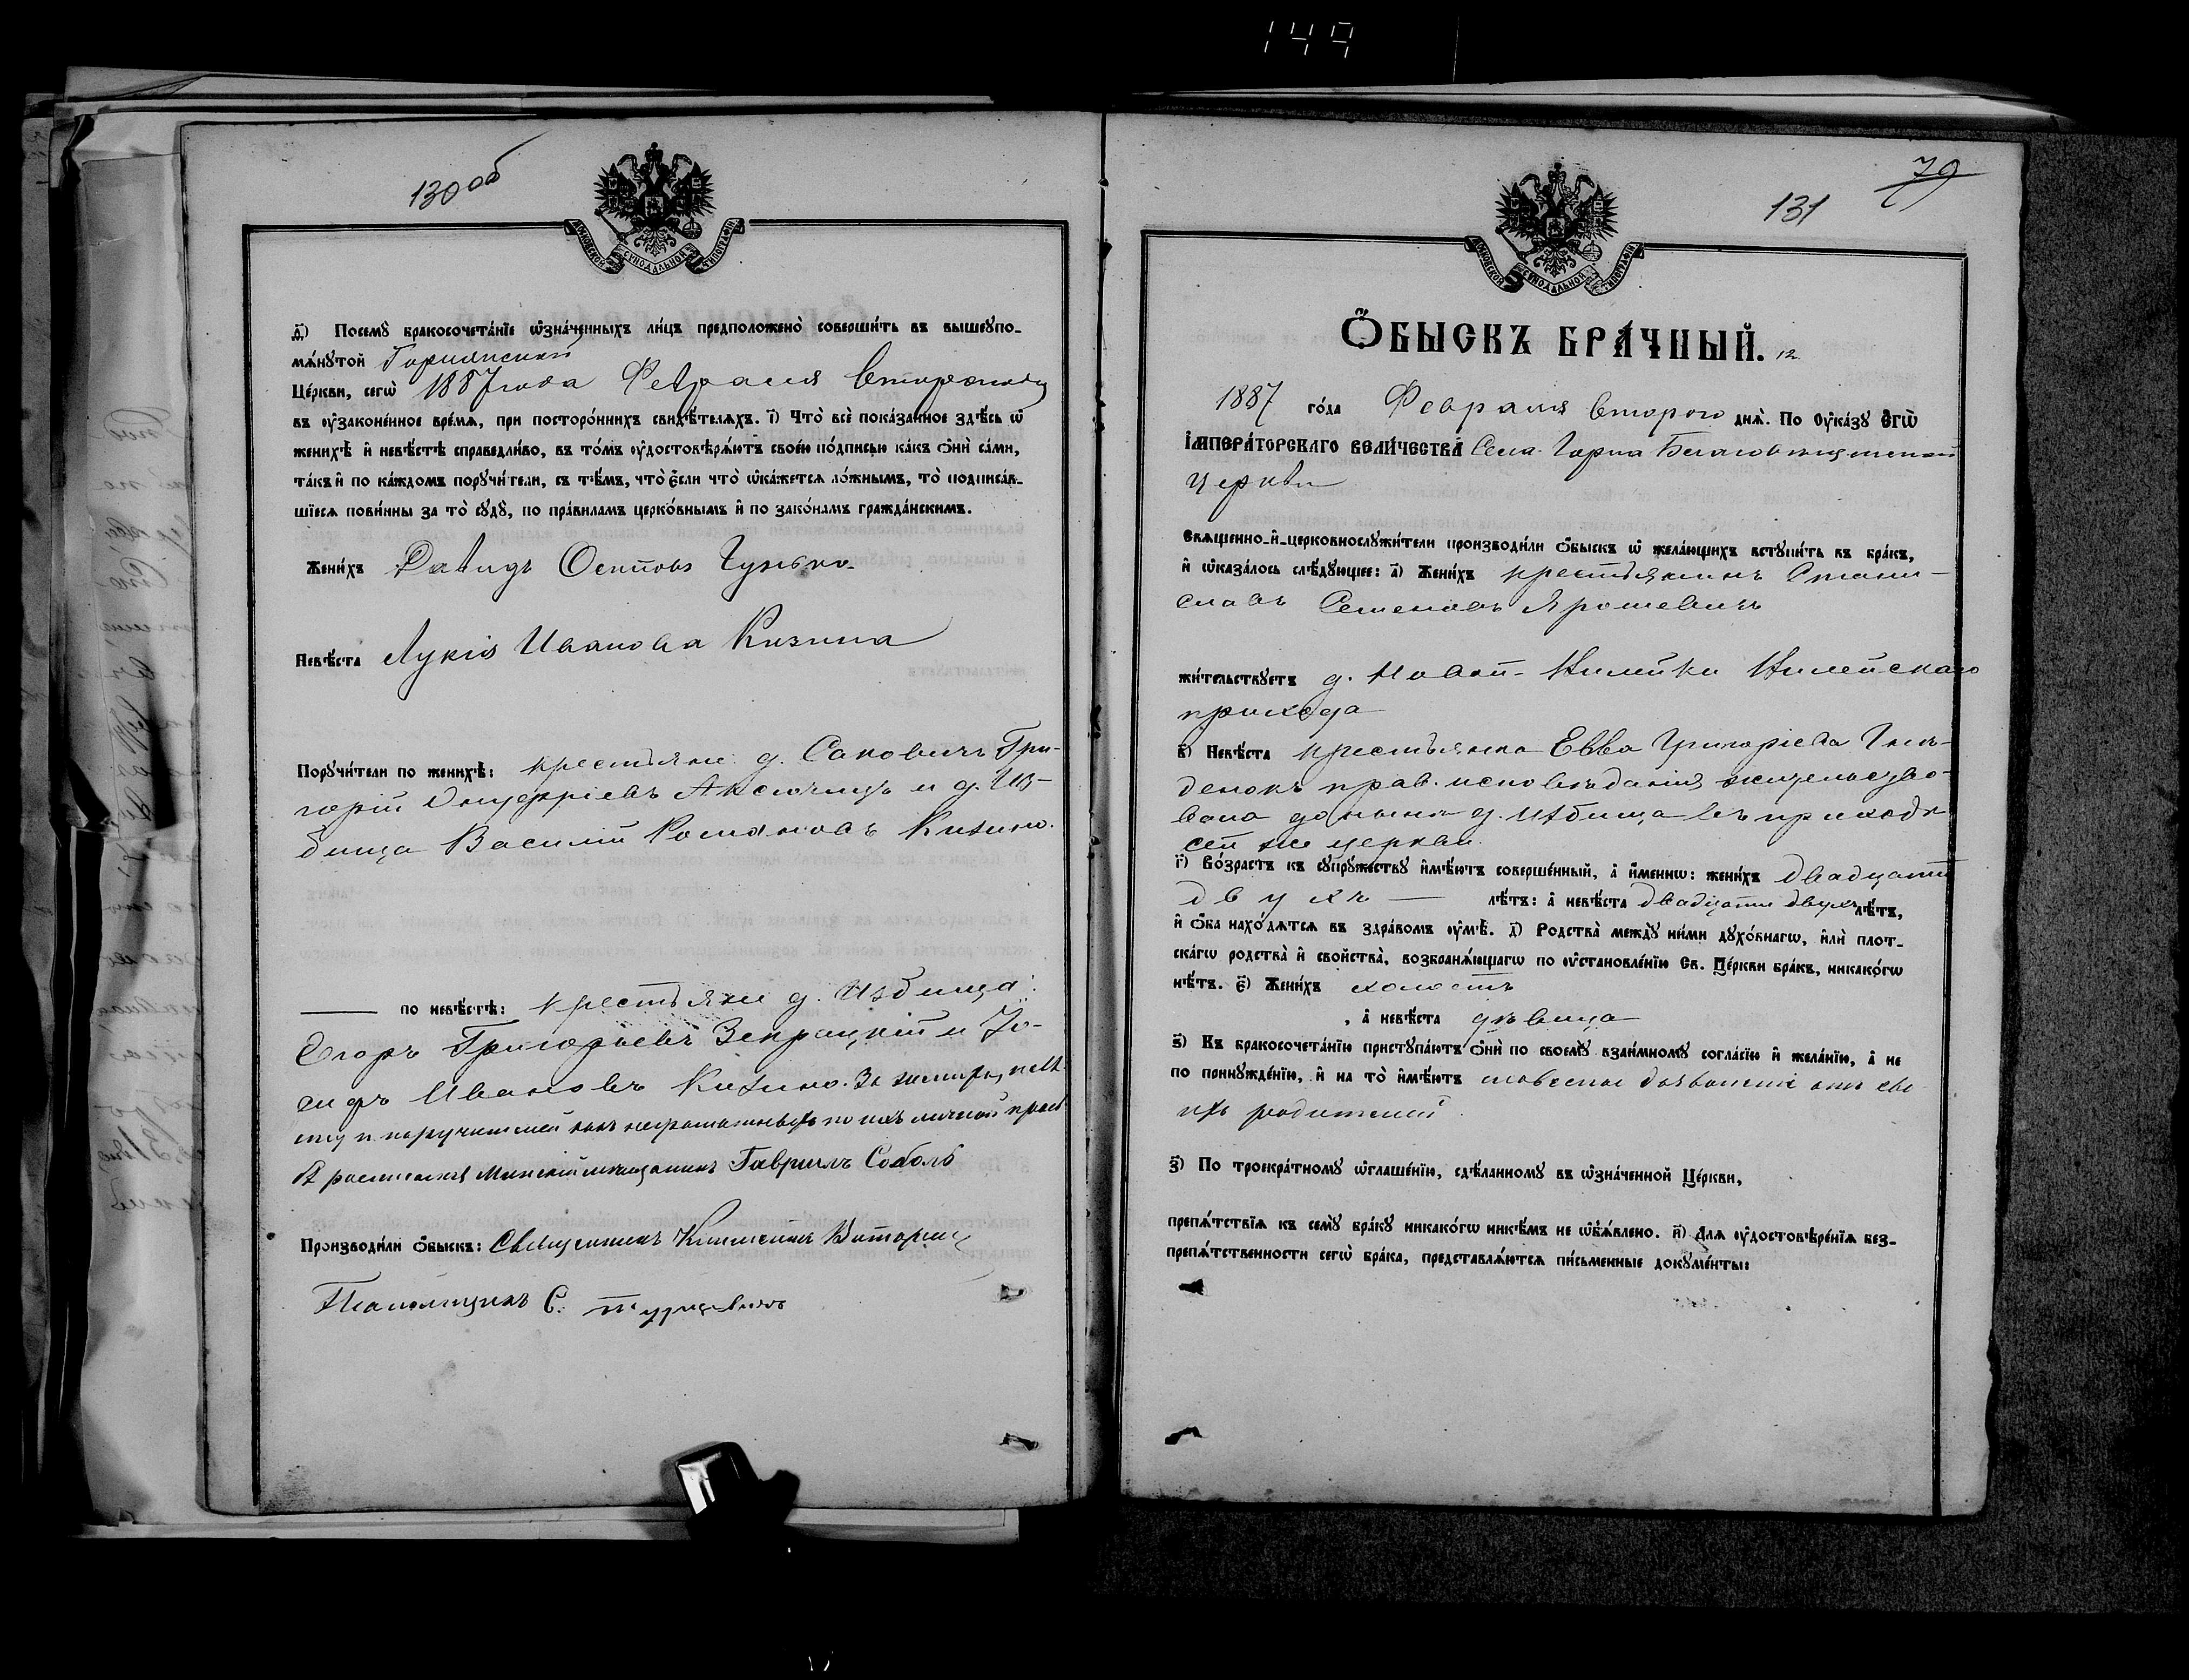 149
130 об
МОСКОВСКОЙ СѴНОДАЛЬНОЙ ТИПОГРАФІИ
д҃і) Посемꙋ̀ бракосочета́нїе ѡ҆зна́ченныхъ ли́цъ предположено̀ соверши́ть въ вышеꙋпо-
мѧ́нꙋтой Горнянской
Це́ркви, сегѡ̀ 1887 года Февраля Втораго дня
въ ᲂу҆зако́ненное вре́мѧ, при посторо́ннихъ свидѣ́телѧхъ. і҃) Что̀ всѐ пока́занное здѣ́сь ѡ҆
женихѣ̀ и҆ невѣ́стѣ справедли́во, въ то́мъ ᲂу҆достовѣрѧ́ютъ свое́ю по́дписью ка́къ ѻ҆нѝ са́ми,
та́къ и҆ по ка́ждомъ порꙋчи́тели, съ тѣ́мъ, что̀ є҆́сли что̀ ѡ҆ка́жетсѧ ло́жнымъ, то̀ подписа́в-
шїесѧ пови́нны за то̀ сꙋдꙋ̀, по пра́виламъ церко́внымъ и҆ по зако́намъ гражда́нскимъ.
Жени́хъ Давидъ Осиповъ Гунько
Невѣ́ста Лукія Иванова Кизина
Порꙋчи́тели по женихѣ̀: крестьяне д. Саковичъ Гри-
горій Онуфріевъ Аксючицъ и д. Из-
бища Василій Романовъ Кизино.
по невѣ́стѣ: крестьяне д. Избища:
Егоръ Григорьевъ Зекрацкій и Іо-
сифъ Ивановъ Кизино. За жениха, невѣ-
сту и поручителей какъ неграмотныхъ по ихъ личной прось
бѣ росписался Минскій мѣщанинъ Гавріилъ Соболь
Производи́ли ѻ҆́быскъ: Священникъ Климентъ
Псаломщикъ С.
79
131
МОСКОВСКОЙ СѴНОДАЛЬНОЙ ТИПОГРАФІИ
Ѻ҆БЫСКЪ БРА́ЧНЫЙ. 12
1887 го́да Февраля Второго днѧ̀. По ᲂу҆ка́зꙋ Є҆гѡ̀
І҆МПЕРА́ТОРСКАГО ВЕЛИ́ЧЕСТВА Села Горна Благовѣщенской
Церкви
Свѧще́нно-и҆-церковнослꙋжи́тели производи́ли ѻ҆́быскъ ѡ҆ жела́ющихъ встꙋпи́ть въ бра́къ,
и҆ ѡ҆каза́лось слѣ́дꙋющее: а҃) Жени́хъ крестьянинъ Стани-
славъ Семеновъ Ярошевичъ
жи́тельствꙋетъ д. Новой-Нилейки Нилейскаго
прихода
в҃) Невѣ́ста крестьянка Евва Григоріева
денокъ прав. исповѣданія жительство-
вала донынѣ д. Избища въ приходѣ
сей же церкви.
г҃) Во́зрастъ къ сꙋпрꙋ́жествꙋ и҆мѣ́ютъ соверше́нный, а҆ и҆́меннѡ: жени́хъ двадцати
двухъ — лѣ́тъ: а҆ невѣ́ста двадцати двухъ лѣ́тъ,
и҆ ѻ҆́ба нахо́дѧтсѧ въ здра́вомъ ᲂу҆мѣ̀. д҃) Родства̀ междꙋ̀ ни́ми дꙋхо́внагѡ, и҆лѝ плот-
ска́гѡ родства̀ и҆ сво́йства, возбранѧ́ющагѡ по ᲂу҆становле́нїю Св. Це́ркви бра́къ, никако́гѡ
нѣ́тъ. є҃) Жени́хъ холостъ
, а҆ невѣ́ста дѣвица
ѕ҃) Къ бракосочета́нїю пристꙋпа́ютъ ѻ҆нѝ по своемꙋ̀ взаи́мномꙋ согла́сїю и҆ жела́нїю, а҆ не
по принꙋжде́нїю, и҆ на то̀ и҆мѣ́ютъ словесное дозволеніе отъ сво-
ихъ родителей.
з҃) По троекра́тномꙋ ѡ҆глаше́нїю, сдѣ́ланномꙋ въ ѡ҆зна́ченной Це́ркви,
препѧ́тствїѧ къ семꙋ̀ бра́кꙋ никако́гѡ никѣ́мъ не ѡ҆б̾ѧ́влено. и҃) Длѧ ᲂу҆достовѣре́нїѧ без-
препѧ́тственности сегѡ̀ бра́ка, представлѧ́ютсѧ пи́сьменные докꙋме́нты: